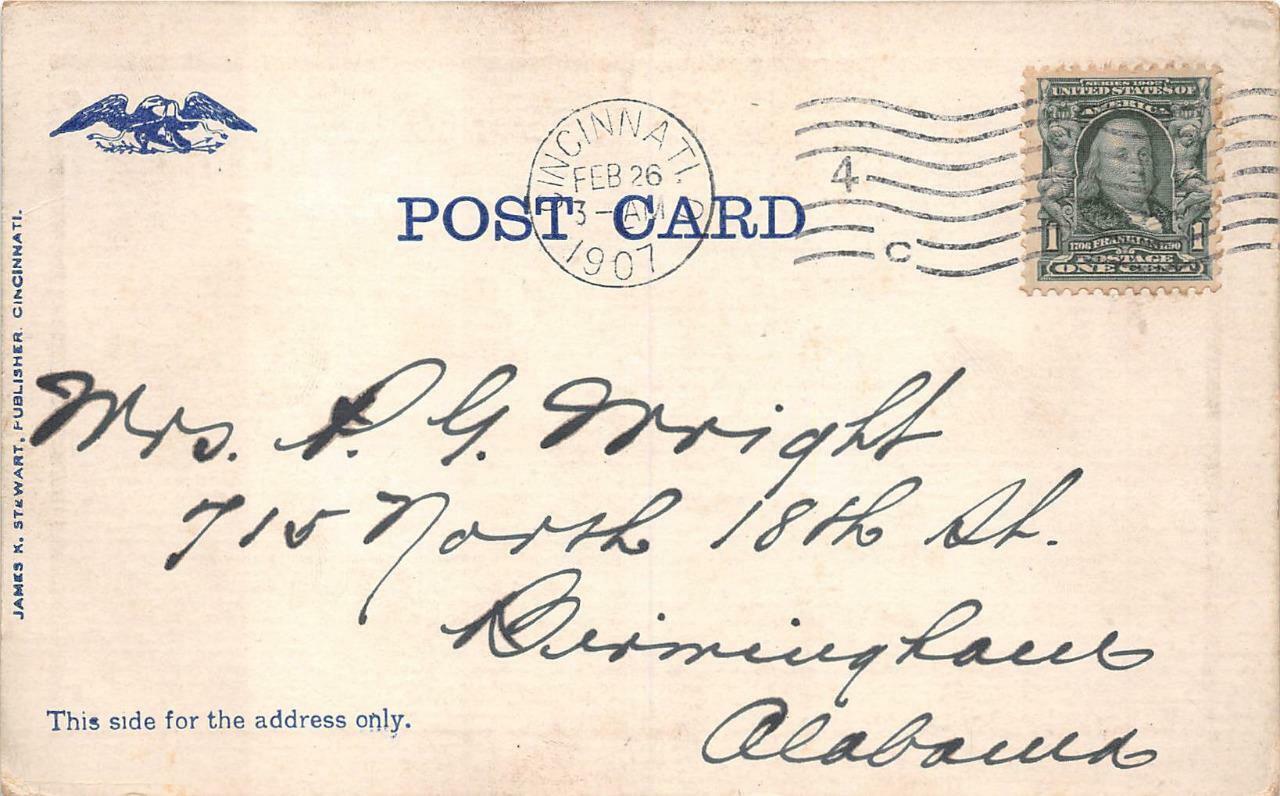 CINCINNATI, O.
FEB 26
3 - AM
1907
4
C
SERIES 1902
UNITED STATES OF
AMERICA
1 1706 FRANKLIN 1790 1
POSTAGE
ONE CENT
POST CARD
JAMES K. STEWART, PUBLISHER. CINCINNATI.
Mrs. P. G. Wright
715 North 18th St.
Birmingham
Alabama
This side for the address only.